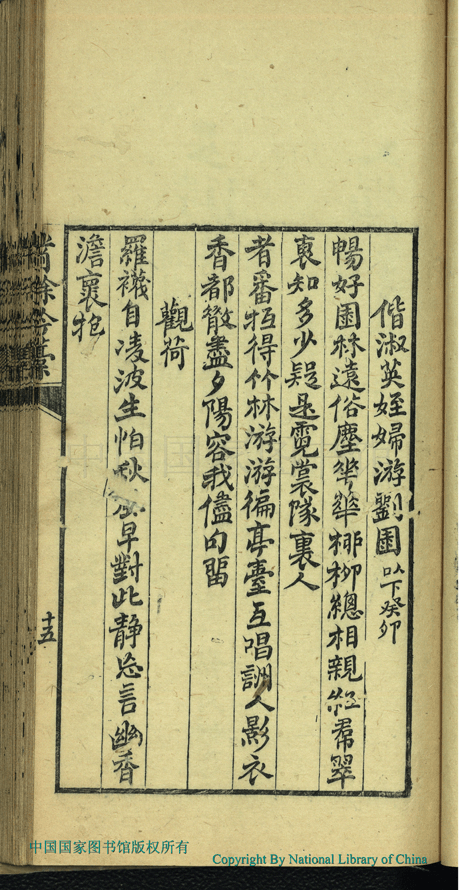 偕淑英姪婦游劉園以下癸卯
暢好園林遠俗塵峯華桺栁總相親紅帬翠
裏知多少疑是霓裳隊裏人
者番恆得竹林游游徧亭臺互唱訓人影衣
香都散盡夕陽容我儘句留
觀荷
羅襪自凌波生怕秋風早對此靜忘言幽香
澹裏抱
吟藁
十五
中国国家图书馆版权所有
Copyright By National Library of China